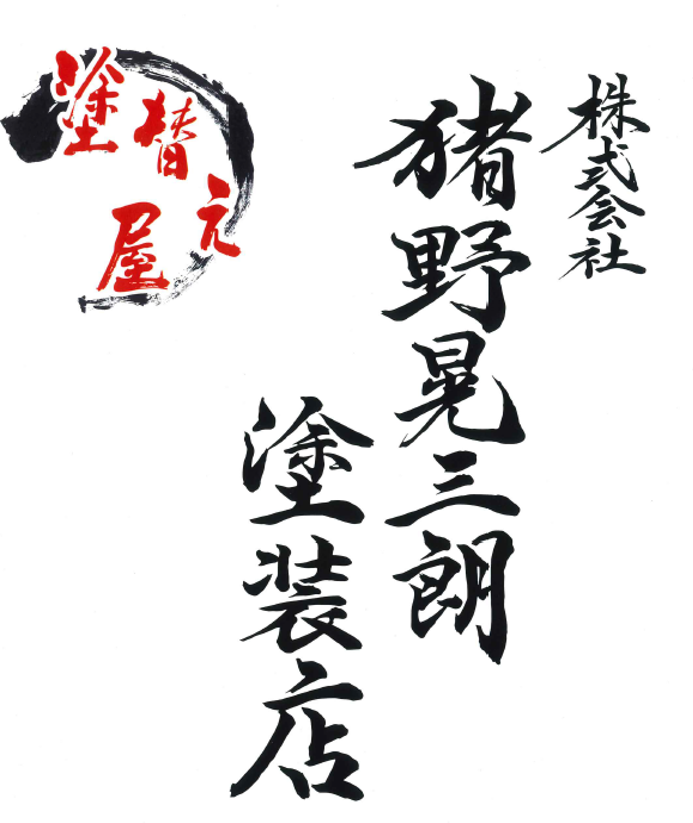 株式会社
猪野晃三朗
塗装店
塗替元屋